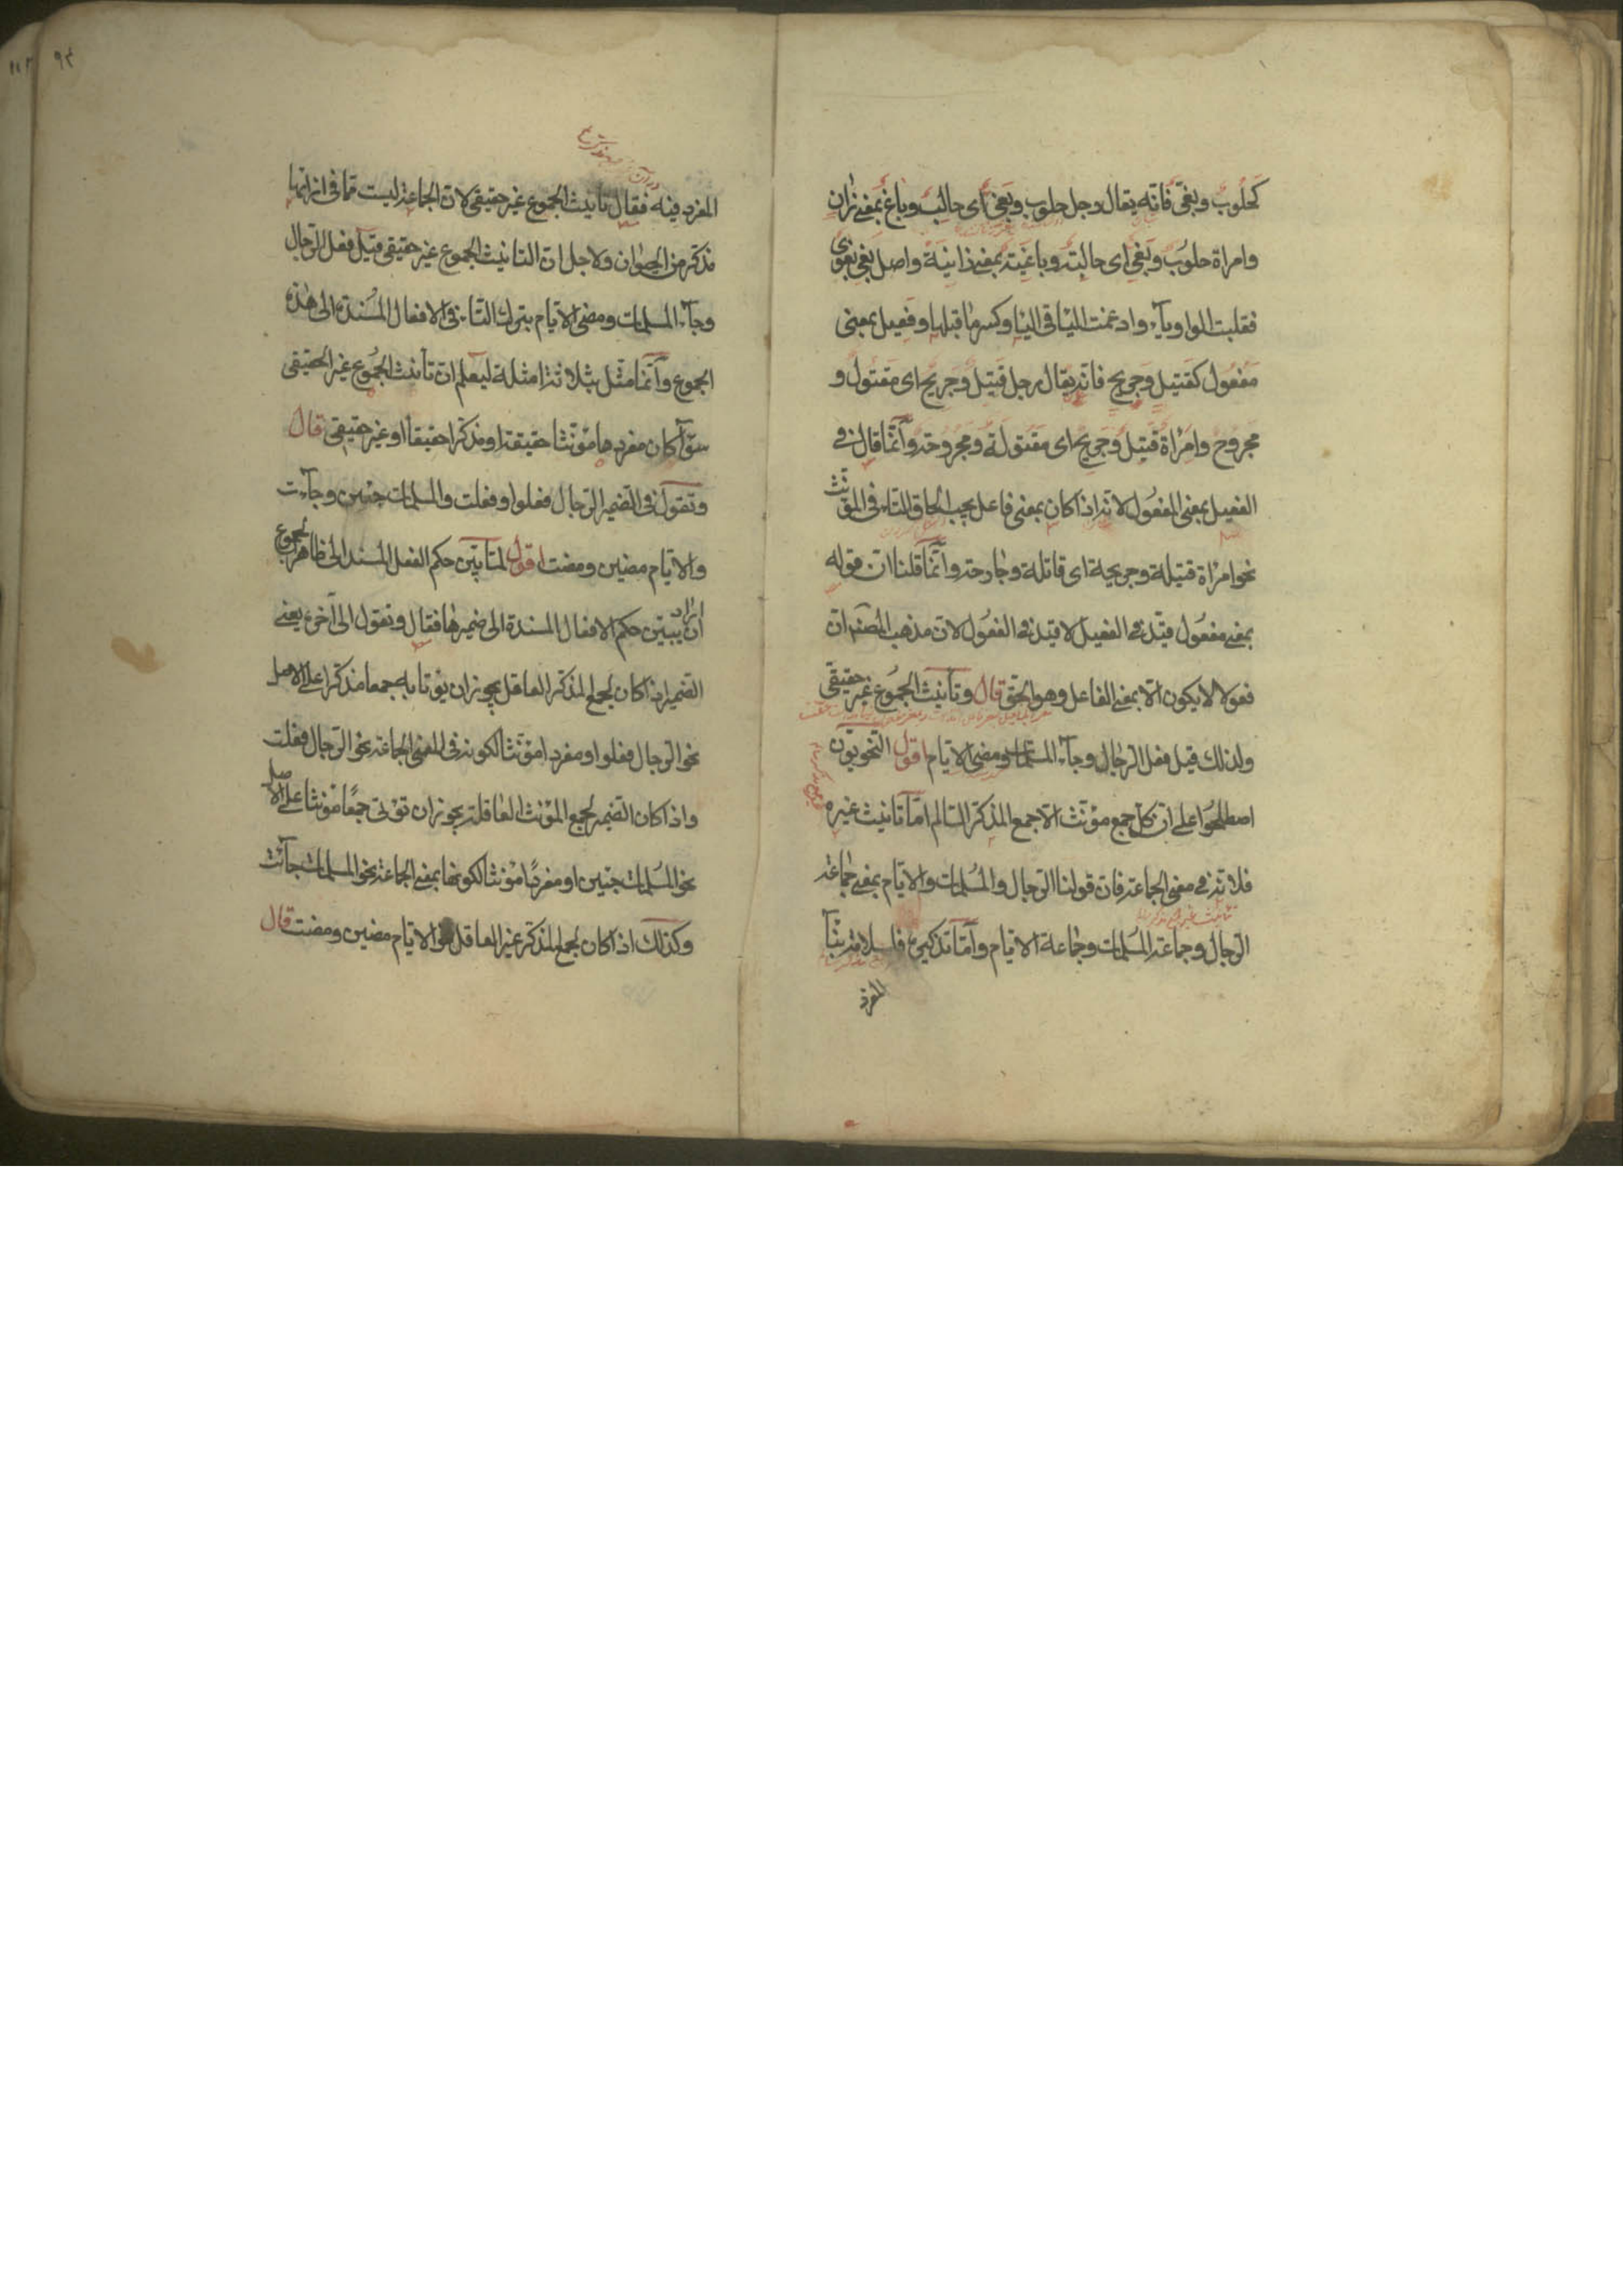 كحلوب وبغى فانه يقال رجل حلوب وبغى اى حالب وباغ بمعنى زان
وامراة حلوب وبغى اى حالبة وباغية بمعنى زانية واصل بغى بغوى
فقلبت الواو ياء وادغمت اليا فى اليا وكسر ما قبلها وفعيل بمعنى
مفعول كقتيل وجريح فانه يقال رجل قتيل وجريح اى مقتول و
مجروح وامراة قتيل وجريح اى مقتولة ومجروحة وانما قال فى
الفعيل بمعنى المفعول لانه اذا كان بمعنى فاعل يجب الحاق التاء فى المؤنث
نحو امراة قتيلة وجريحة اى قاتلة وجارحة وانما قلنا ان قوله
بمعنى مفعول قيد فى الفعيل لا قيد فى الفعول لان مذهب المصنف ان
فعولا لا يكون الا بمعنى الفاعل وهو الحق قال وتأنيث الجموع غير حقيقى
ولذلك قيل فعل الرجال وجاء المسلمات ومضى الايام اقول النحويون
اصطلحوا على ان كل جمع مؤنث الا جمع المذكر السالم اما تانيث غيره
فلانه فى معنى الجماعة فان قولنا الرجال والمسلمات والايام بمعنى جماعة
الرجال وجماعة المسلمات وجماعة الايام واما تذكيره فلسلامة بناء
المفرد
٩٢
المفرد فيه فقال تانيث الجموع غير حقيقى لان الجماعة ليست مما فى ازائها
مذكر من الحيوان ولاجل ان التانيث الجموع غير حقيقى قيل فعل الرجال
وجاء المسلمات ومضى الايام بترك التاء فى الافعال المسندة الى هذه
الجموع وانما مثل بثلاثة امثلة ليعلم ان تأنيث الجموع غير الحقيقى
سواء كان مفردها مؤنثا حقيقة او مذكرا حقيقا او غير حقيقى قال
وتقول فى الضمير الرجال فعلوا وفعلت والمسلمات جئين وجاءت
والايام مضين ومضت اقول لما بين حكم الفعل المسند الى ظاهر الجموع
اراد ان يبين حكم الافعال المسندة الى ضميرها فقال وتقول الى آخره يعنى
الضمير اذا كان لجمع المذكر العاقل يجوز ان يؤتا به جمعا مذكرا على الاصل
نحو الرجال فعلوا ومفردا مؤنثا لكونه فى المعنى الجماعة نحو الرجال فعلت
واذا كان الضمير لجمع المؤنث العاقلة يجوز ان تؤتى جمعا مؤنثا على الاصل
نحو المسلمات جئين او مفردا مؤنثا لكونها بمعنى الجماعة نحو المسلمات جائت
وكذلك اذا كان لجمع المذكر غير العاقل نحو الايام مضين ومضت قال